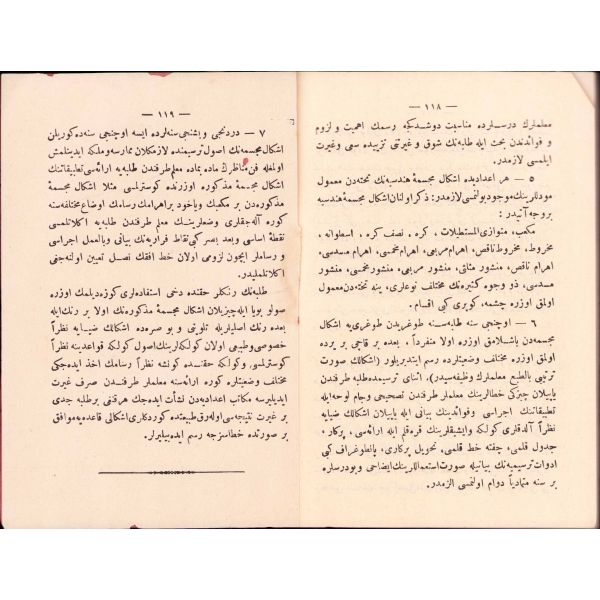 — ١١٨ —
معلملرك درسلرده مناسبت دوشدكجه رسمك اهميت و لزوم
و فوائدندن بحث ايله طلبه‌نك شوق و غيرتى تزييده سعى وغيرت
ايلمسى لازمدر.
٥ — هر اعداديده اشكال مجسمۀ هندسيه‌نك تخته‌دن معمول
مودللرينك موجود بولنمسى لازمدر: ذكر اولنان اشكال مجسمۀ هندسيه
بروجه آتيدر :
مكعب، متوازى المستطيلات، كره ، نصف كره ، اسطوانه ،
مخروط، مخروط ناقص، اهرام مربعى، اهرام مخمسى، اهرام مسدسى،
اهرام ناقص، منشور مثلثى، منشور مربعى، منشور مخمسى، منشور
مسدسى، ذو وجوه كثيره‌نك مختلف نوعلرى، ينه تخته‌دن معمول
اولمق اوزره چشمه، كوپرى كبى اقسام .
٦ — اوچنجى سنه طلبه‌سنه طوغريدن طوغرى‌يه اشكال
مجسمه‌دن باشلامق اوزره اولا منفرداً ، بعده بر قاچى بر يرده
اولمق اوزره مختلف وضعيتلرده رسم ايتديريلور (اشكالك صورت
ترتيبى بالطبع معلملرك وظيفه‌سيدر). اثناى ترسيمده طلبه طرفندن
ياپيلان چيزكى خطالرينك معلملر طرفندن تصحيحى وجام لوحه ايله
تطبيقاتنك اجراسى وفوائدينك بيانى ايله ياپيلان اشكالك ضيايه
نظراً آله‌جقلرى كولكه وايشيقلرينك قره قلم ايله ارائه‌سى ، پركار،
جدول قلمى، چفته خط قلمى، تحويل پركارى، پانطوغراف كبى
ادوات ترسيميه‌نك بيانيله صورت استعماللرينك ايضاحى وبودرسلره
بر سنه متمادياً دوام اولنمسى الزمدر.
— ١١٩ —
٧ — دردنجى و بشنجى سنه‌لرده ايسه اوچنجى سنه‌ده كوريلن
اشكال مجسمه‌نك اصول ترسيمنده لازمكلان ممارسه وملكه ايدينلمش
اولمغله فن مناظرك ماده بماده معلم طرفندن طلبه‌يه ارائه‌سى تطبيقاتنك
اشكال مجسمۀ مذكوره اوزرنده كوسترلمسى مثلا اشكال مجسمۀ
مذكوره‌دن بر مكعبك وياخود براهرامك رسامك اوضاع مختلفه‌سنه
كوره آله‌جقلرى وضعلرينك معلم طرفندن طلبه‌يه اكلاتلمسى
نقطۀ اساسى وبعد بصر كبى نقاط فراريه‌نك بيانى وبالعمل اجراسى
و رساملر ايچون لزومى اولان خط افقك نصل تعيين اولنه‌جغى
اكلاتلمليدر.
طلبه‌نك رنكلر حقنده دخى استفاده‌لرى كوزه‌ديلمك اوزره
صولو بويا ايله چيزيلان اشكال مجسمۀ مذكوره‌نك اولا بر رنك ايله
بعده رنك اصليلريله تلوينى و بو صره‌ده اشكالك ضيايه نظراً
خصوصى وطبيعى اولان كولكه‌لرينك اصول كولكه قواعدينه نظراً
كوسترلمسى، وكولكه حقنده كونشه نظراً رسامك اخذ ايده‌جكى
مختلف وضعيتلره كوره ارائه‌سنه معلملر طرفندن صرف غيرت
ايديليرسه مكاتب اعداديه‌دن نشأت ايده‌جك هرقنغى بر طلبه جدى
بر غيرت نتيجه‌سى اوله‌رق طبيعتده كوردكلرى اشكالى قاعده‌يه موافق
بر صورتده خطاسزجه رسم ايده‌بيليرلر.